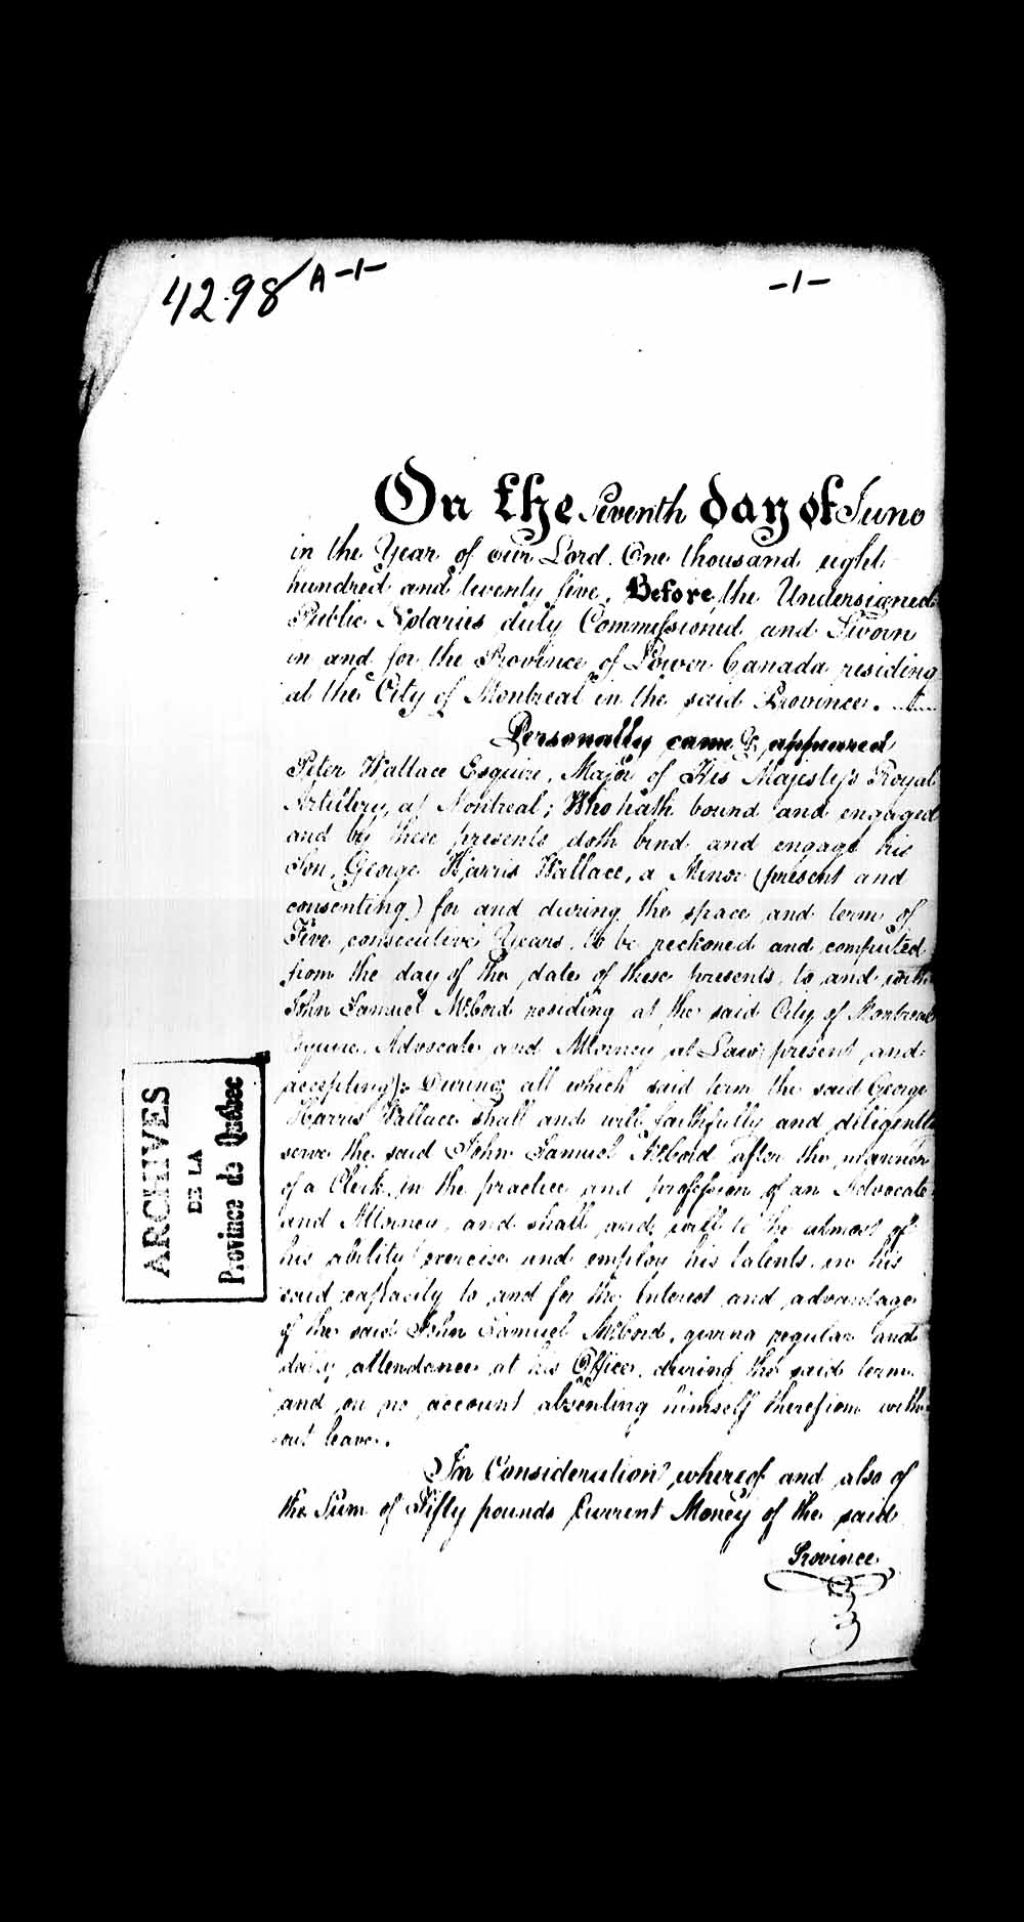 4298 A-1-
-1-
On the Seventh day of June
in the Year of our Lord One thousand eight
hundred and twenty five, Before the Undersigned
Public Notaries duly Commissioned and Sworn
in and for the Province of Lower Canada residing
at the City of Montreal in the said Province.
Personally came & appeared
Peter Wallace Esquire, Major of His Majesty's Royal
Artillery, at Montreal; Who hath bound and engaged
and by these presents doth bind and engage his
Son, George Harris Wallace, a Minor (present and
consenting) for and during the space and term of
Five consecutive Years, to be reckoned and computed
from the day of the date of these presents, to and with
John Samuel McCord residing at the said City of Montreal
Esquire, Advocate and Attorney at Law (present and
accepting): During all which said term the said George
Harris Wallace shall and will faithfully and diligently
serve the said John Samuel McCord after the manner
of a Clerk in the practice and profession of an Advocate
and Attorney, and shall and will to the utmost of
his ability exercise and employ his talents in his
said capacity to and for the Interest and advantage
of the said John Samuel McCord, giving regular and
daily attendance at his Office, during the said term
and on no account absenting himself therefrom with-
out leave.
In Consideration whereof and also of
the Sum of Fifty pounds Current Money of the said
Province
ARCHIVES
DE LA
Province de Québec